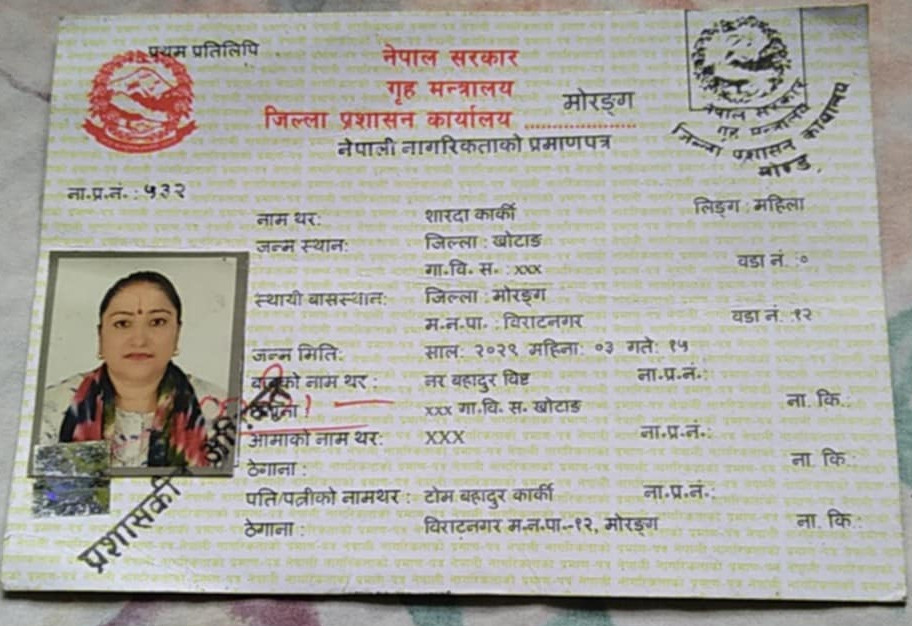 प्रथम प्रतिलिपि
नेपाल सरकार
गृह मन्त्रालय
जिल्ला प्रशासन कार्यालय .................. मोरङ्ग
नेपाली नागरिकताको प्रमाणपत्र
नेपाल सरकार
गृह मन्त्रालय
जिल्ला प्रशासन कार्यालय
मोरङ्ग
ना.प्र.नं. : ५३२
नाम थर: शारदा कार्की लिङ्ग : महिला
जन्म स्थान: जिल्ला : खोटाङ
गा.वि. स. : xxx वडा नं. : ०
स्थायी बासस्थान: जिल्ला : मोरङ्ग
म.न.पा. : विराटनगर वडा नं. : १२
जन्म मिति: साल: २०२९ महिना: ०३ गते: १५
बाबुको नाम थर : नर बहादुर विष्ट ना.प्र.नं.:
ठेगाना : xxx गा.वि. स. खोटाङ ना. कि.:
आमाको नाम थर: XXX ना.प्र.नं.:
ठेगाना : ना. कि.:
पति/पत्नीको नामथर : टोम बहादुर कार्की ना.प्र.नं.:
ठेगाना : विराटनगर म.न.पा.-१२, मोरङ्ग ना. कि.:
प्रशासकीय अधिकृत